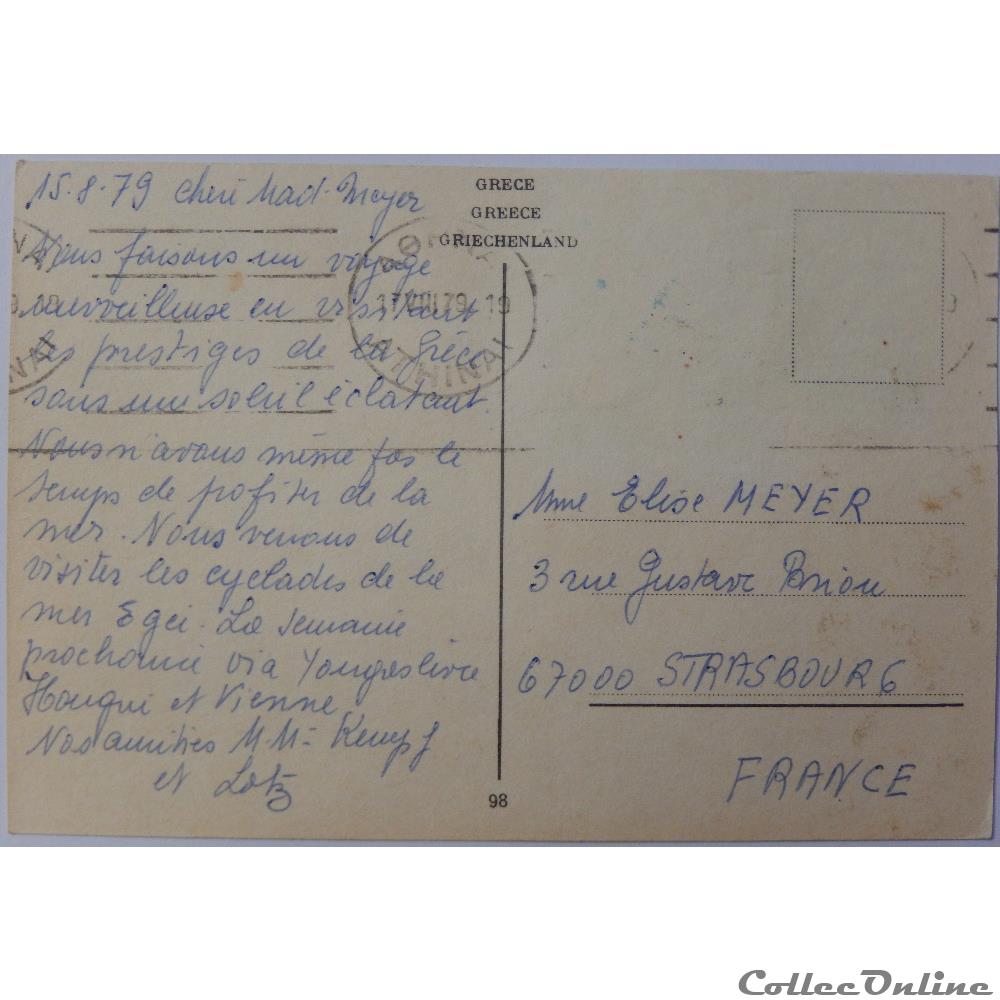 15-8-79 cheri Mad- Meyer
Nous faisons un voyage
merveilleuse en visitant
les prestiges de la Grèce
sous un soleil éclatant.
Nous n'avons même pas le
temps de profiter de la
mer. Nous venons de
visiter les cyclades de la
mer Egei. La semaine
prochaine via Yougoslivie
Hongui et Vienne
Nos amities M.M- Kempf
et Lotz
GRECE
GREECE
GRIECHENLAND
ΑΘΗΝΑΙ
17 VIII 79 19
ATHINAI
Mme Elise MEYER
3 rue Gustave Brion
67000 STRASBOURG
FRANCE
98
CollecOnline